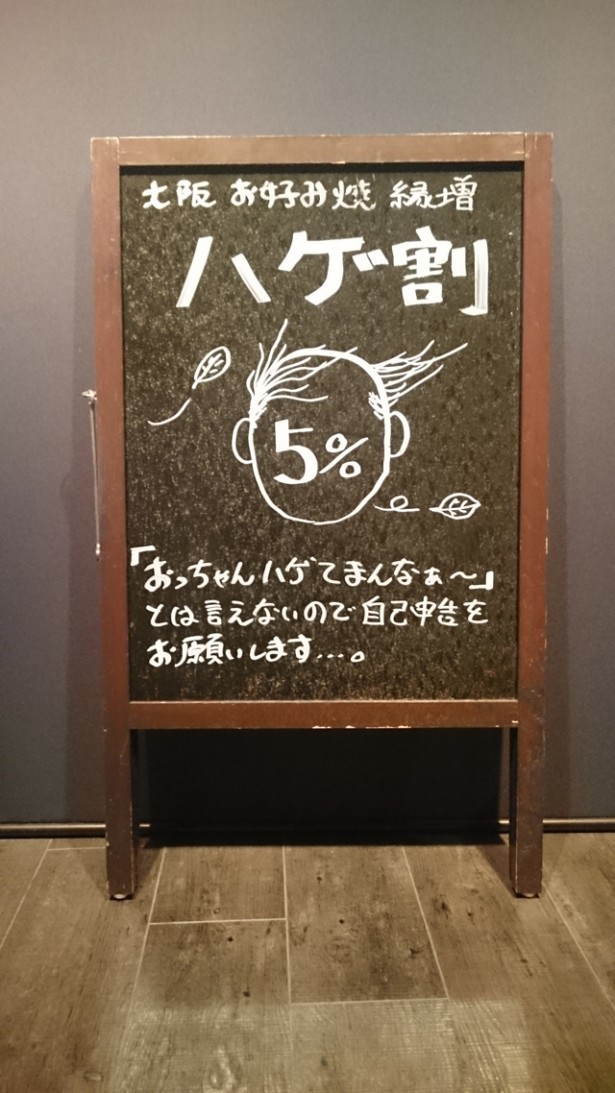 大阪 お好み焼 縁増
ハゲ割
5%
「おっちゃんハゲてまんなぁ〜」
とは言えないので自己申告を
お願いします…。